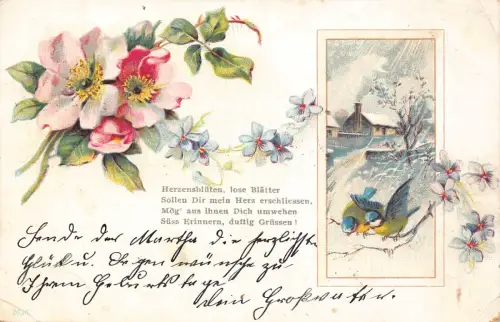 Herzensblüten, lose Blätter
Sollen Dir mein Herz erschliessen,
Mög' aus ihnen Dich umwehen
Süss Erinnern, duftig Grüssen!
Sende der Martha die herzlichste
Glück u. Segen wünsche zu
Ihrem Geburtstage
dein Großvater.